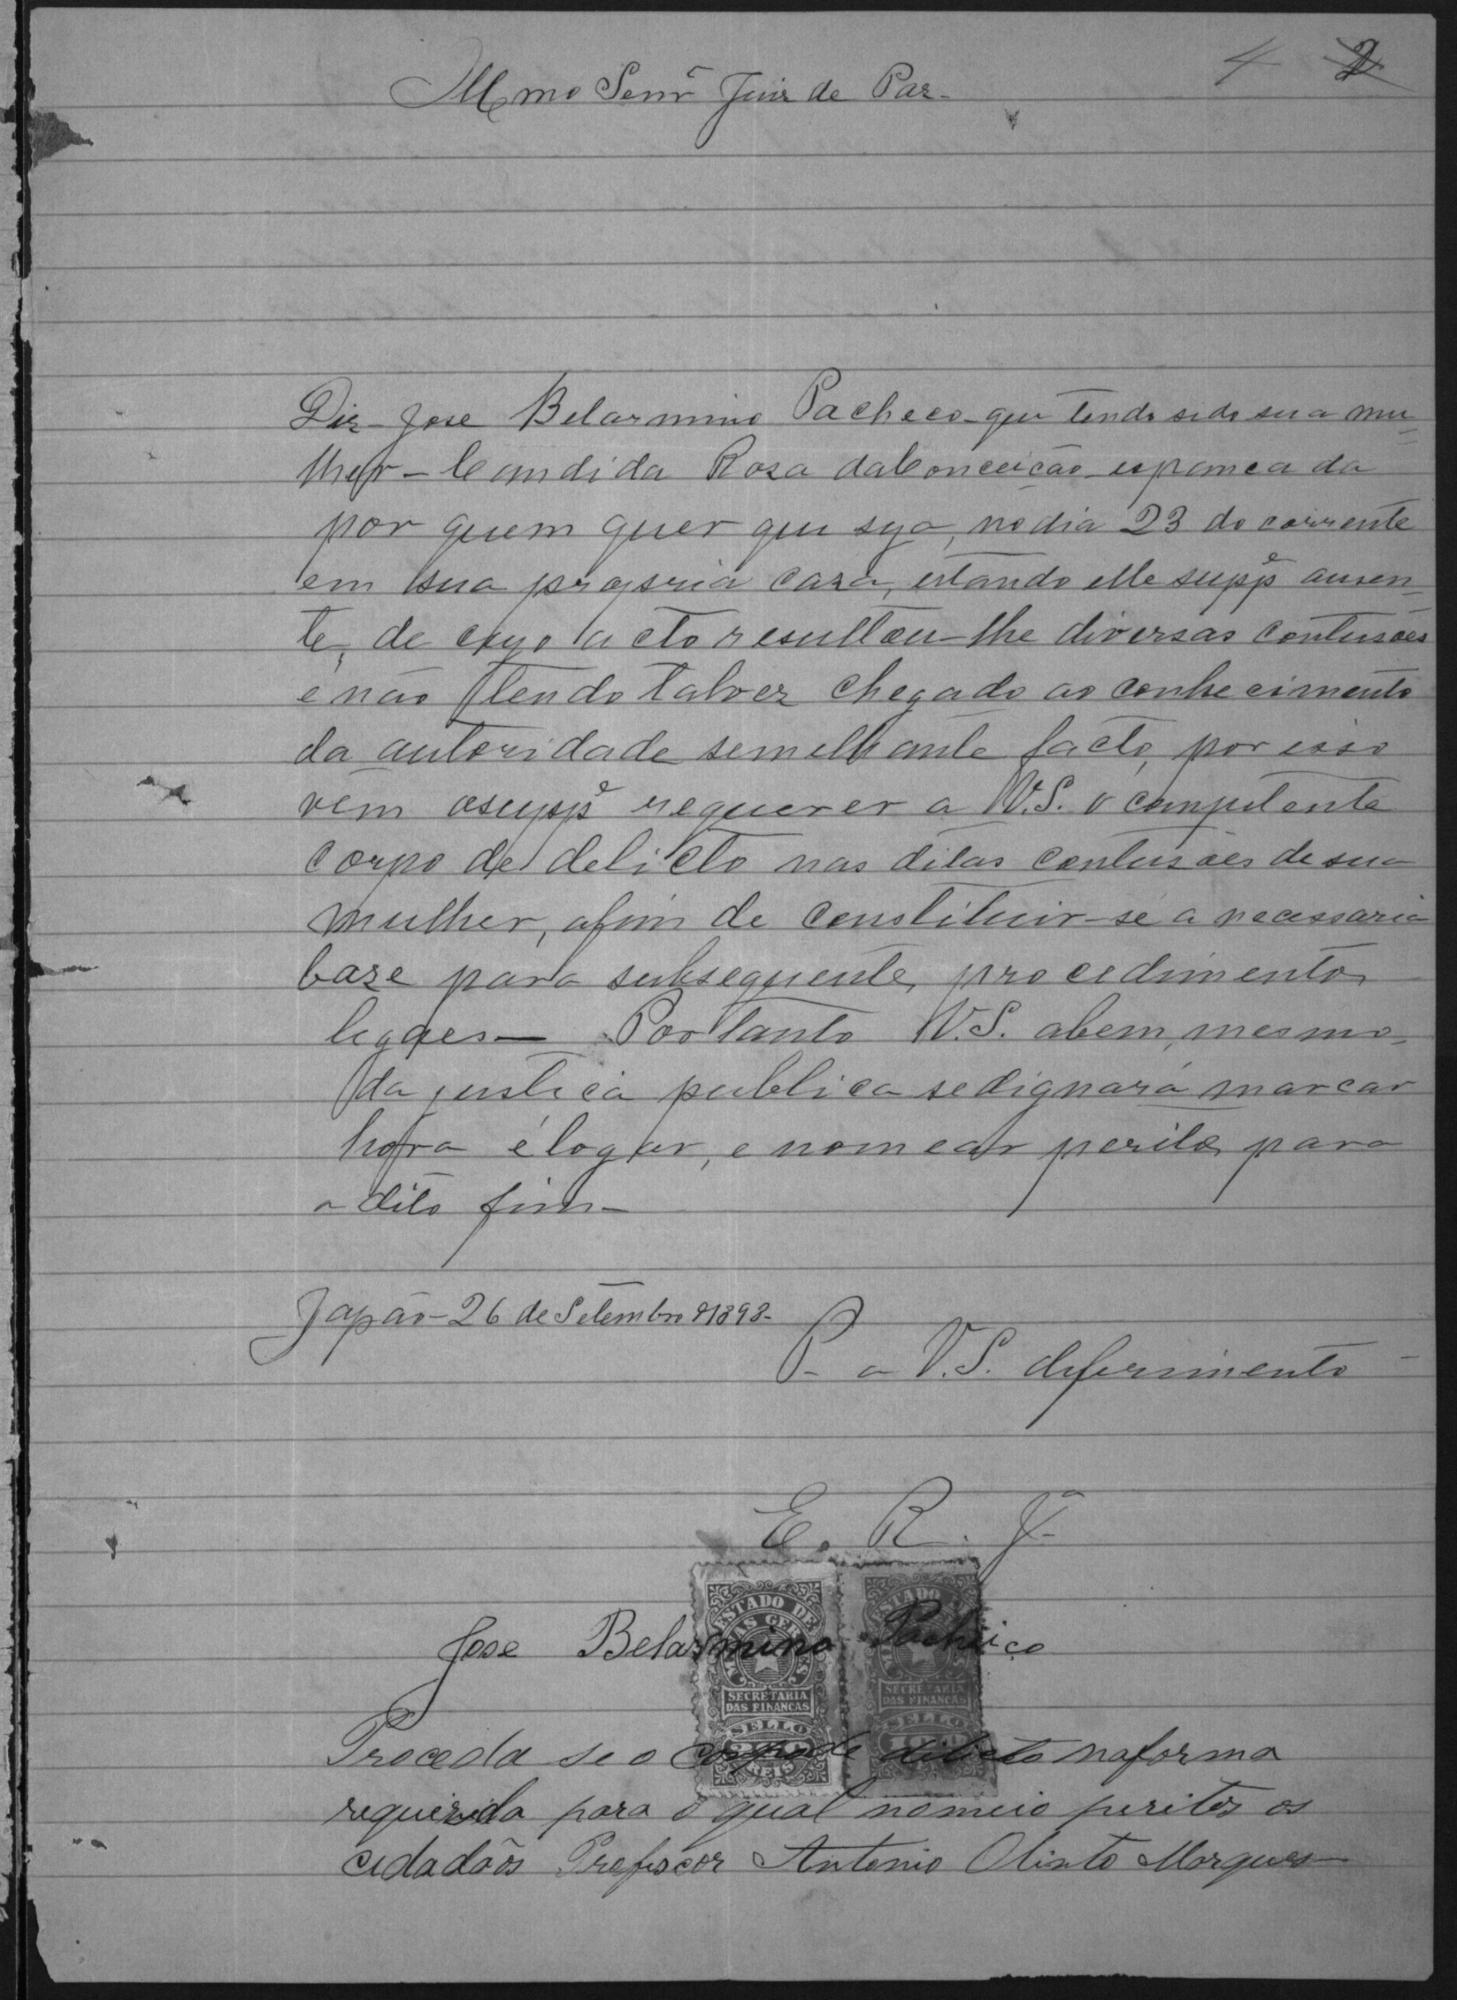 4 2
Illmo Senr Juiz de Paz-
Diz-Jose Belarmino Pacheco-que tendo sido sua mu=
lher-Candida Rosa da Conceição espancada
por quem quer que seja, no dia 23 do corrente
em sua propria casa, estando elle suppe ausen=
te, de cujo acto resultou-lhe diversas contusões
e não tendo talvez chegado ao conhecimento
da autoridade semelhante facto, por isso
vem o suppe requerer a V.S. o competente
corpo de delicto nas ditas contusões de sua
mulher, afim de constituir-se a necessaria
base para subsequente, procedimentos
legaes- Portanto V.S. abem, mesmo,
da justiça publica se dignará marcar
hora é logar, e nomear peritos para
o dito fim-
Japão-26 de Setembro 1898-
P- a V.S. deferimento-
E. R. Jª
ESTADO DE MINAS GERAES
SECRETARIA DAS FINANCAS
SELLO
200
REIS
ESTADO DE MINAS GERAES
SECRETARIA DAS FINANCAS
SELLO
100
Jose Belarmino Pacheico
Proceda se o corpo de dilicto na forma
requerida para o qual nomeio peritos os
cidadãos Profescor Antonio Olinto Marques